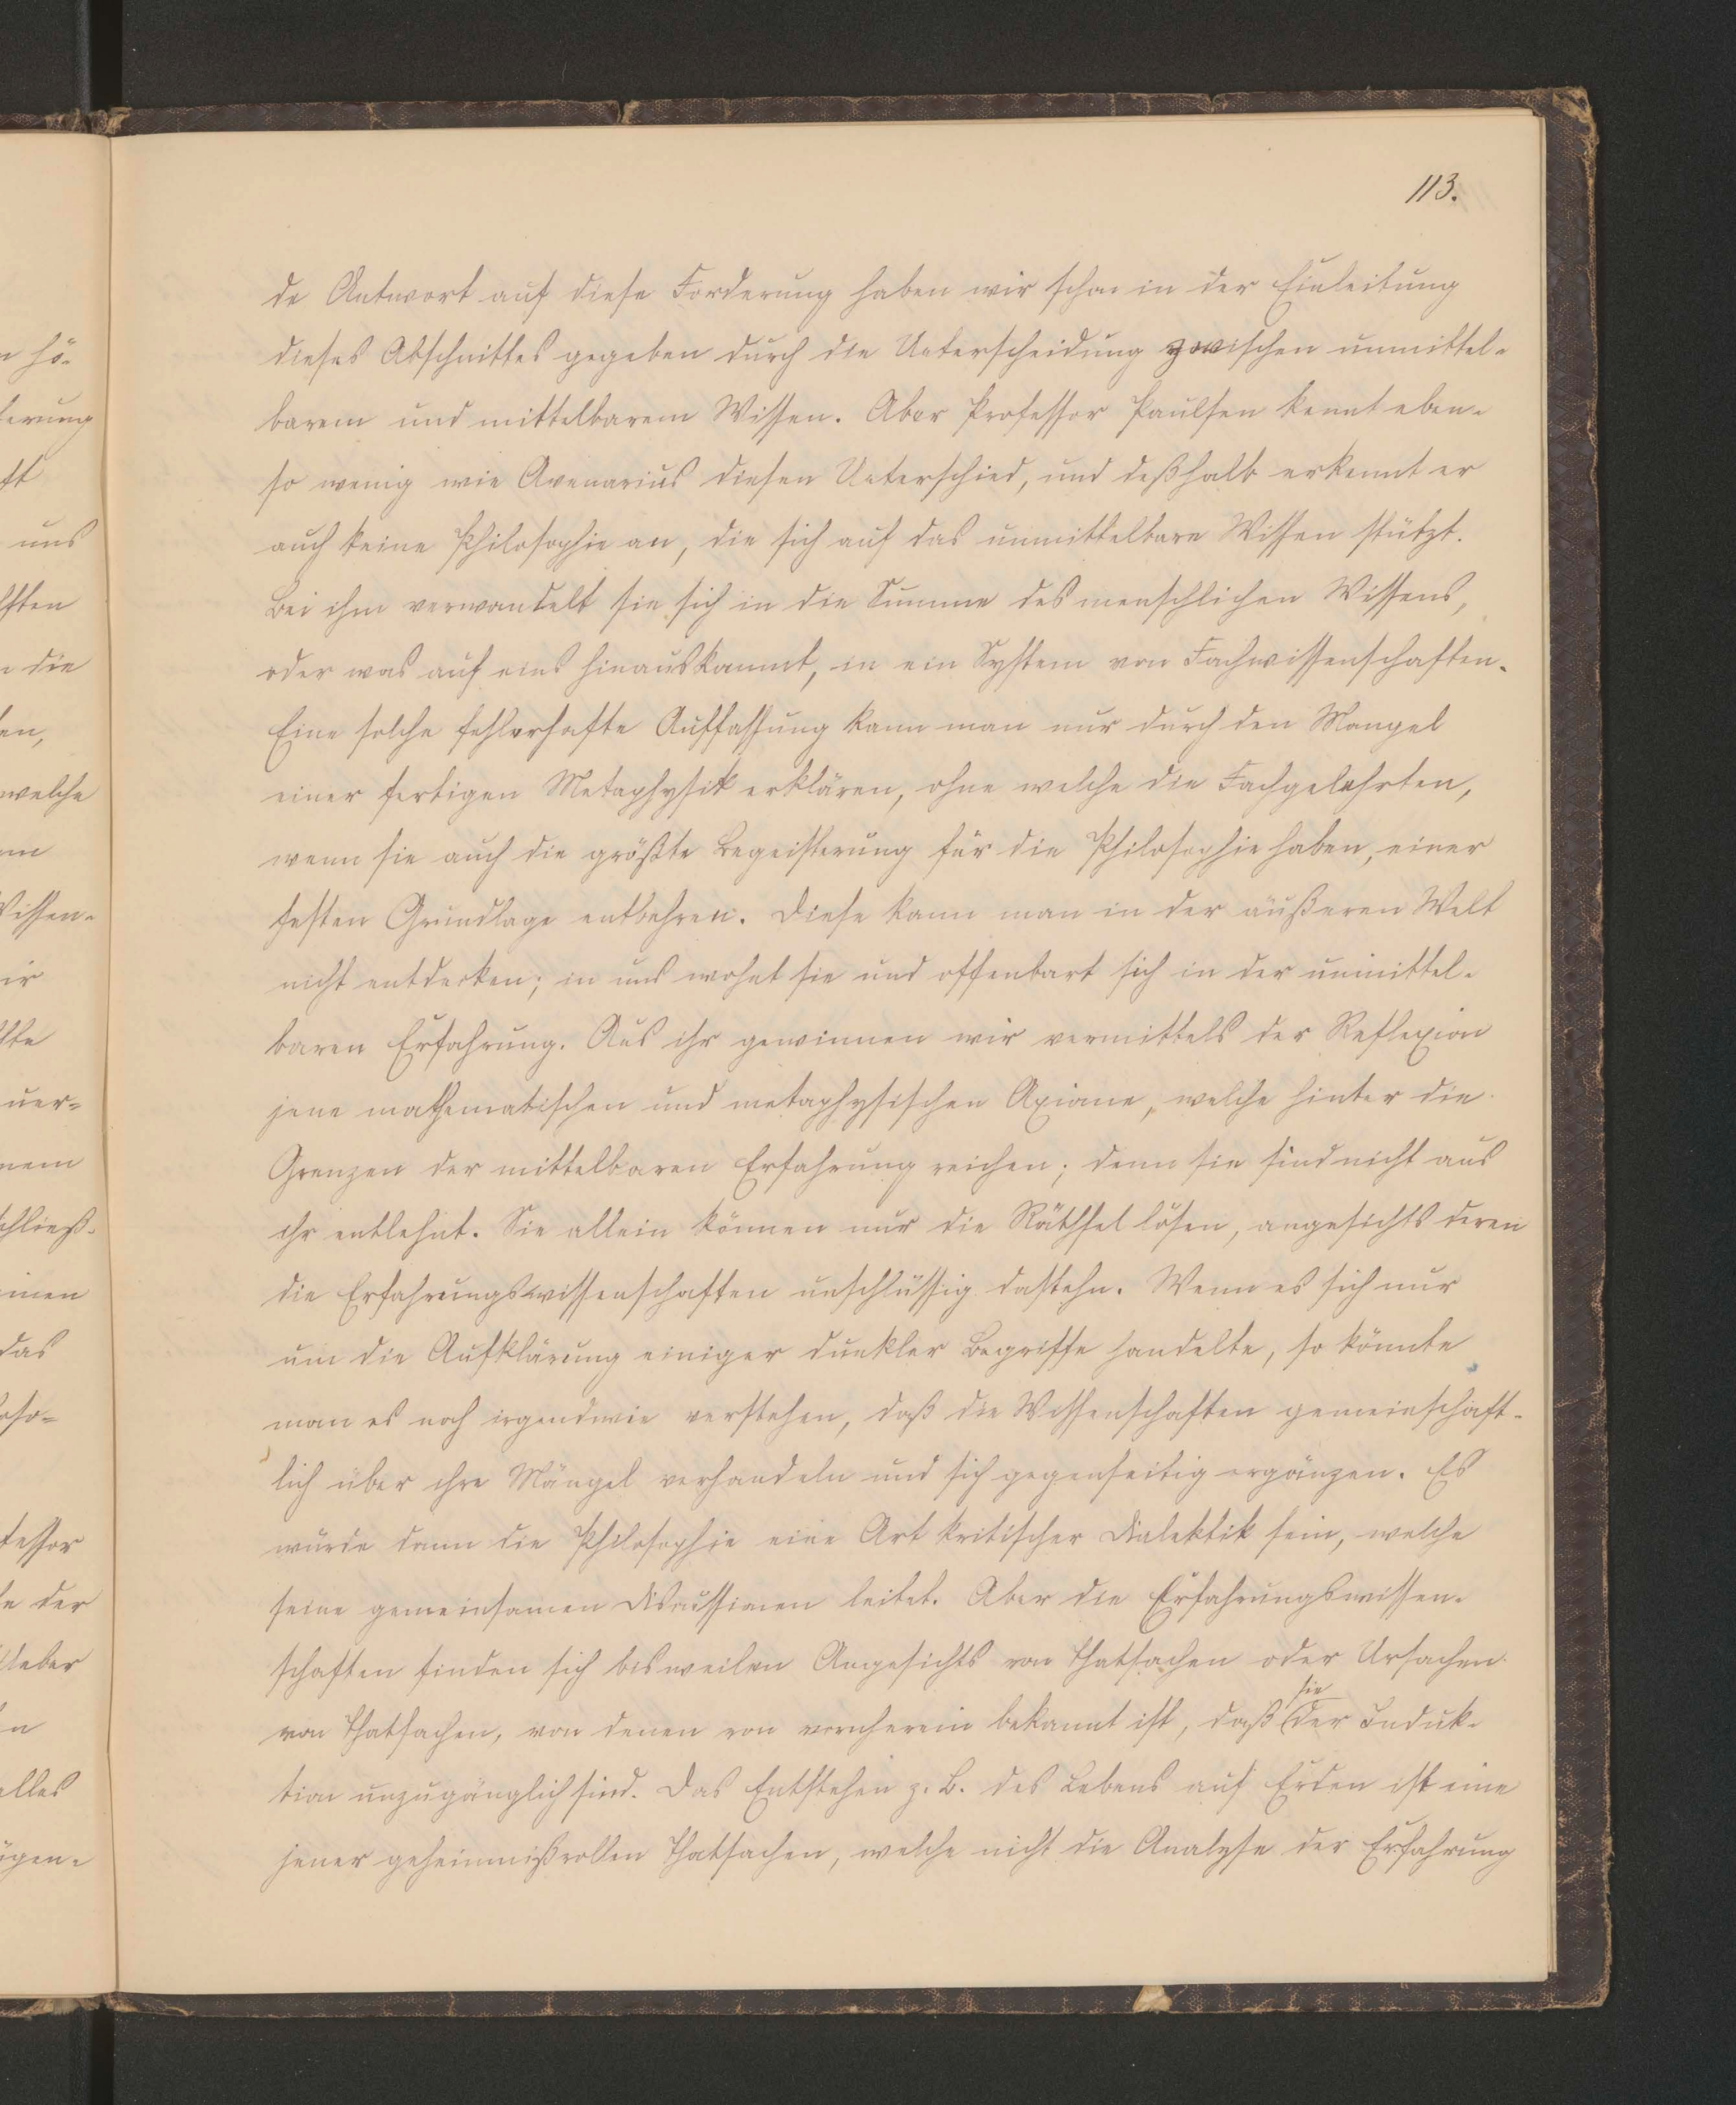 113.
de Antwort auf diese Forderung haben wir schon in der Einleitung
dieses Abschnittes gegeben durch die Unterscheidung zwischen unmittel-
barem und mittelbarem Wissen. Aber Professor Paulsen kennt eben-
so wenig wie Avenarius diesen Unterschied, und deßhalb erkennt er
auch keine Philosophie an, die sich auf das unmittelbare Wissen stützt.
Bei ihm verwandelt sie sich in die Summe des menschlichen Wissens,
oder was auf eins hinauskommt, in ein System von Fachwissenschaften.
Eine solche fehlerhafte Auffassung kann man nur durch den Mangel
einer fertigen Metaphysik erklären, ohne welche die Fachgelehrten,
wenn sie auch die größte Begeisterung für die Philosophie haben, einer
festen Grundlage entbehren. Diese kann man in der äußeren Welt
nicht entdecken; in uns wohnt sie und offenbart sich in der unmittel-
baren Erfahrung. Aus ihr gewinnen wir vermittels der Reflexion
jene mathematischen und metaphysischen Axiome, welche hinter die
Grenzen der mittelbaren Erfahrung reichen; denn sie sind nicht aus
ihr entlehnt. Sie allein können nur die Räthsel lösen, angesichts deren
die Erfahrungswissenschaften unschlüssig dastehn. Wenn es sich nur
um die Aufklärung einiger dunkler Begriffe handelte, so könnte
man es noch irgendwie verstehen, daß die Wissenschaften gemeinschaft-
lich über ihre Mängel verhandeln und sich gegenseitig ergänzen. Es
würde dann die Philosophie eine Art kritischer Dialektik sein, welche
seine gemeinsamen Discussionen leitet. Aber die Erfahrungswissen-
schaften finden sich bisweilen Angesichts von Thatsachen oder Ursachen
sie
von Thatsachen, von denen von vornherein bekannt ist, daß der Induk-
tion unzugänglich sind. Das Entstehen z. B. des Lebens auf Erden ist eine
jener geheimnißvollen Thatsachen, welche nicht die Analyse der Erfahrung